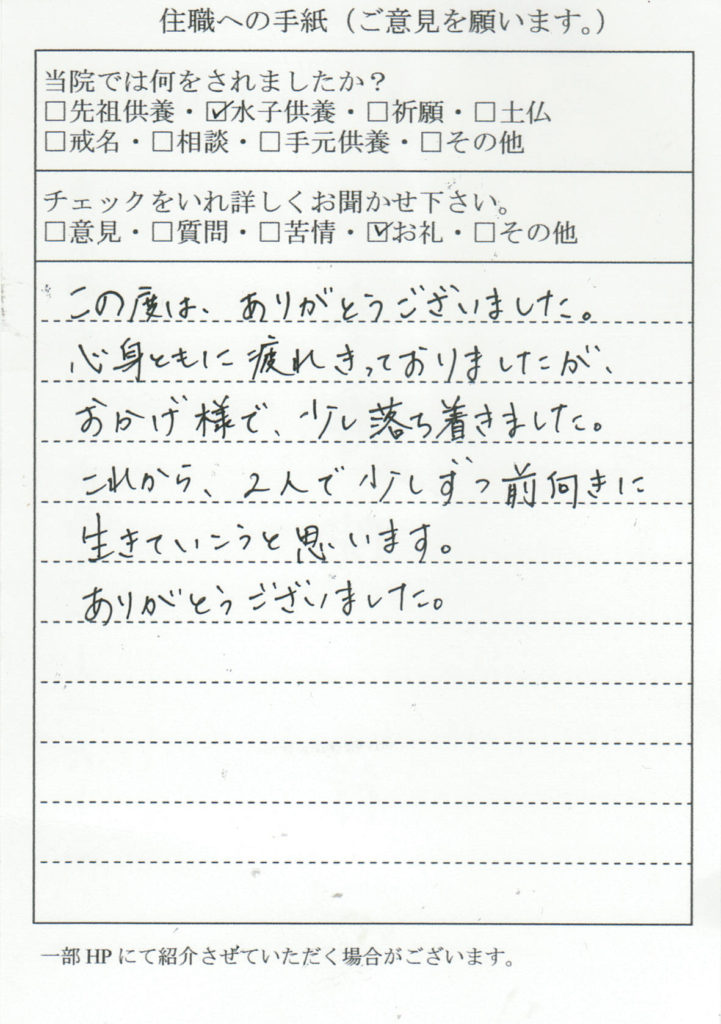 住職への手紙（ご意見を願います。）
当院では何をされましたか？
□先祖供養・☑水子供養・□祈願・□土仏
□戒名・□相談・□手元供養・□その他
チェックをいれ詳しくお聞かせ下さい。
□意見・□質問・□苦情・☑お礼・□その他
この度は、ありがとうございました。
心身ともに疲れきっておりましたが、
おかげ様で、少し落ち着きました。
これから、2人で少しずつ前向きに
生きていこうと思います。
ありがとうございました。
一部HPにて紹介させていただく場合がございます。